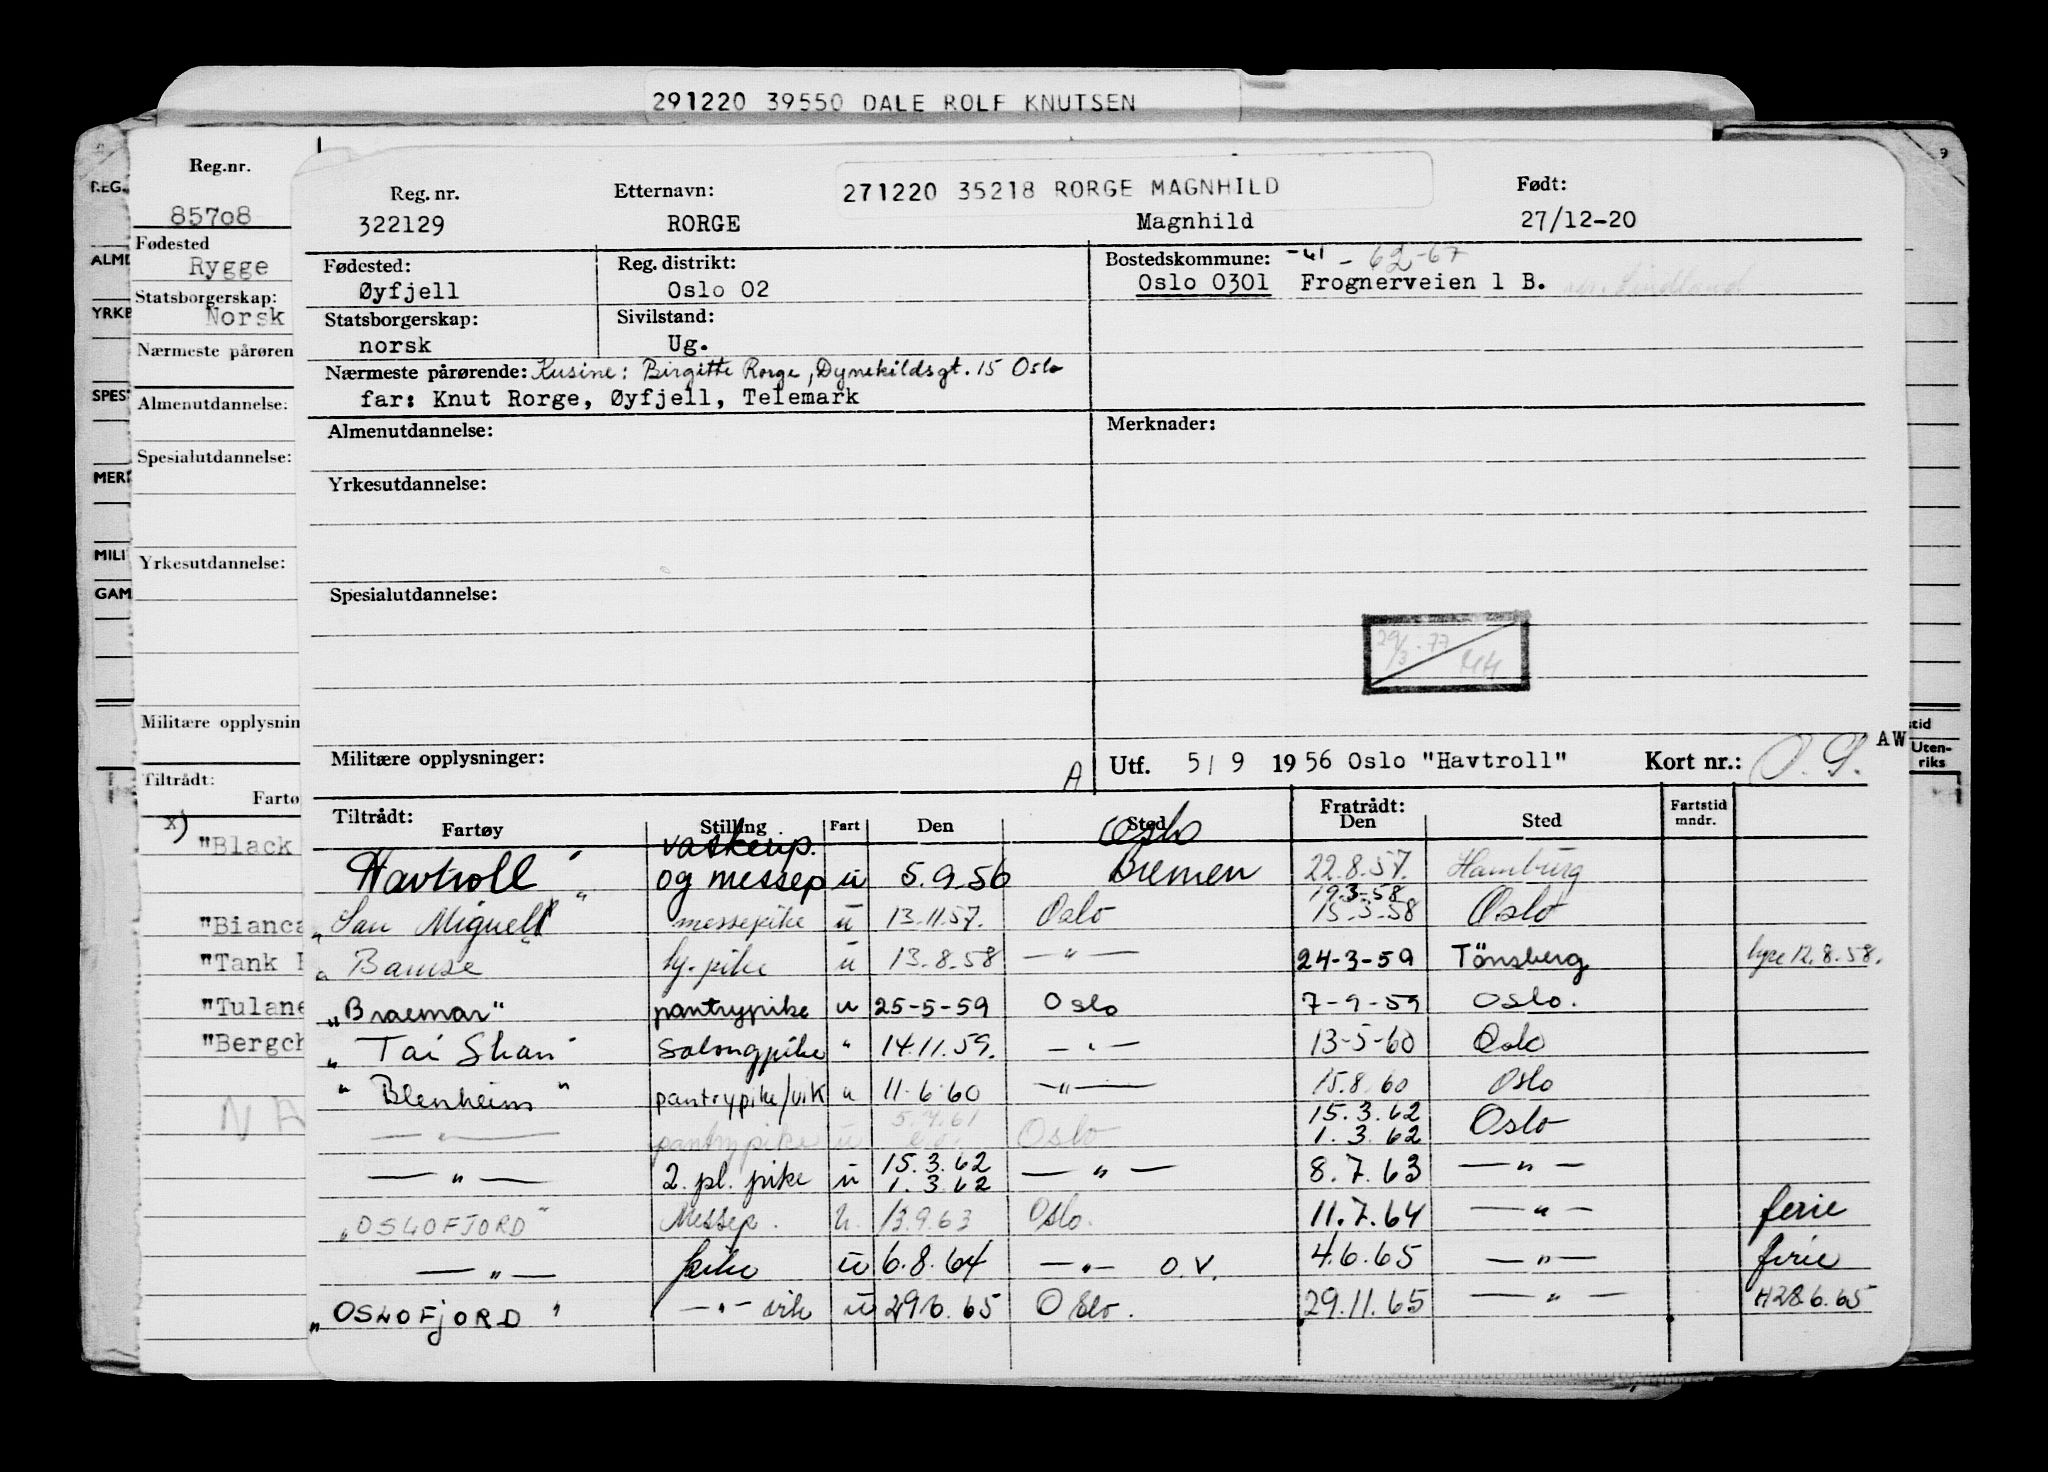 291220 39550 DALE ROLF KNUTSEN
Reg.nr.
85708
Fødested
Rygge
Statsborgerskap:
Norsk
Nærmeste pårøren
Almenutdannelse:
Spesialutdannelse:
Yrkesutdannelse:
Militære opplysnin
Tiltrådt:
Fartø
x)
"Black
"Bianca
"Tank
"Tulane
"Bergch
REG.
ALM
YRKE
SPES
MER
MILI
GAM
9
stid
Uten-
riks
AW
Reg. nr. Etternavn: 271220 35218 RORGE MAGNHILD Født:
322129 RORGE Magnhild 27/12-20
Fødested: Reg. distrikt: Bostedskommune: -41 - 62-67
Øyfjell Oslo 02 Oslo 0301 Frognerveien 1 B.
Statsborgerskap: Sivilstand:
norsk Ug.
Nærmeste pårørende: Kusine: Birgitte Rorge, Dynekildsgt. 15 Oslo
far: Knut Rorge, Øyfjell, Telemark
Almenutdannelse: Merknader:
Yrkesutdannelse:
Spesialutdannelse:
29/3-77
Militære opplysninger: A Utf. 5/9 1956 Oslo "Havtroll" Kort nr.: O.S.
Tiltrådt: Fartøy Stilling Fart Den Sted Fratrådt: Den Sted Fartstid mndr.
vaskerip. Oslo
Havtroll " og messep u 5.9.56 Bremen 22.8.57. Hamburg
19.3.58
"San Miguel" messepike u 13.11.57. Oslo 15-3-58 Oslo
"Bamse" by.pike u 13.8.58 —"— 24-3-59 Tönsberg hyre 12.8.58.
"Braemar" pantrypike u 25-5-59 Oslo 7-9-59 Oslo.
"Tai Shan" Salongpike " 14.11.59. —"— 13-5-60 Oslo
"Blenheim" pantrypike/vik " 11.6.60 —"— 15.8.60 Oslo
5.4.61 15.3.62
—"— pantrypike u Oslo 1.3.62 Oslo
15.3.62
—"— 2. pl. pike u 1.3.62 —"— 8.7.63 —"—
"OSLOFJORD" Messep. u. 13.9.63 Oslo. 11.7.64 —"— ferie
—"— pike u 6.8.64 —"— O.V. 4.6.65 —"— ferie
"OSLOFJORD" —"— vik u 29.6.65 Oslo. 29.11.65 —"— H28.6.65